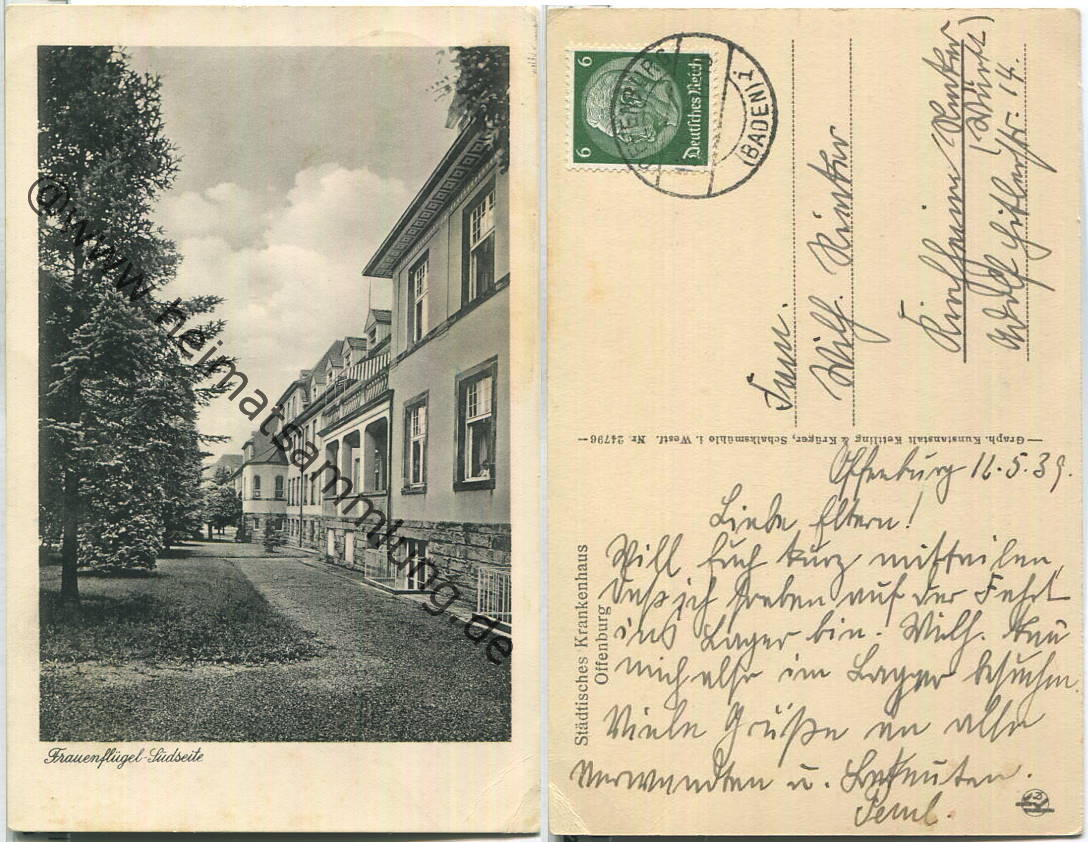 Frauenflügel-Südseite
@www.heimatsammlung.de
6 6
Deutsches Reich
OFFENBURG
(BADEN) 1
Fam.
Wilh. Rinker
Kirchheim Neckar
(Württ)
Adolf Hitlerstr. 14.
— Graph. Kunstanstalt Kettling & Krüger, Schalksmühle i. Westf. Nr. 24796 —
Städtisches Krankenhaus
Offenburg
Offenburg 12.5.39.
Liebe Eltern!
Will Euch kurz mitteilen,
daß ich soeben auf der Fahrt
ins Lager bin. Wilh. kan
mich also im Lager besuchen.
Viele Grüße an alle
Verwandten u. Bekannten.
Paul.